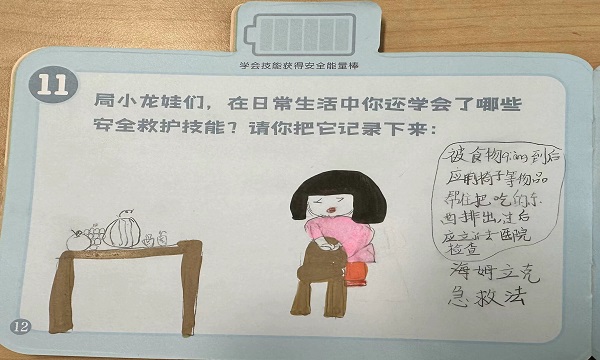 学会技能获得安全能量棒
11
局小龙娃们，在日常生活中你还学会了哪些
安全救护技能？请你把它记录下来：
被食物qiang到后
应用椅子等物品
帮住把吃的东
西排出，过后
应立许去医院
检查
海姆立克
急救法
12